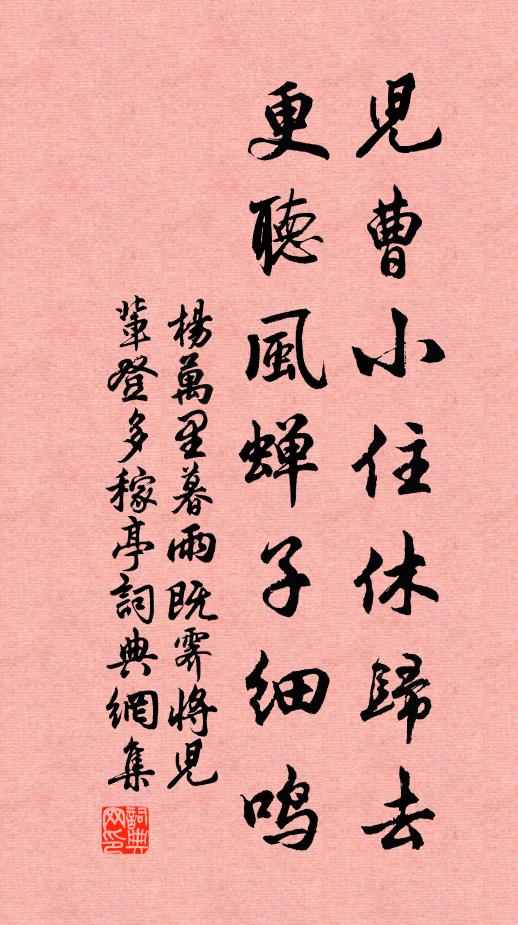 兒曹小住休歸去
更聽風蟬子細鳴
楊萬里暮雨既霽將兒
輩登多稼亭詞典網集
詞典网印